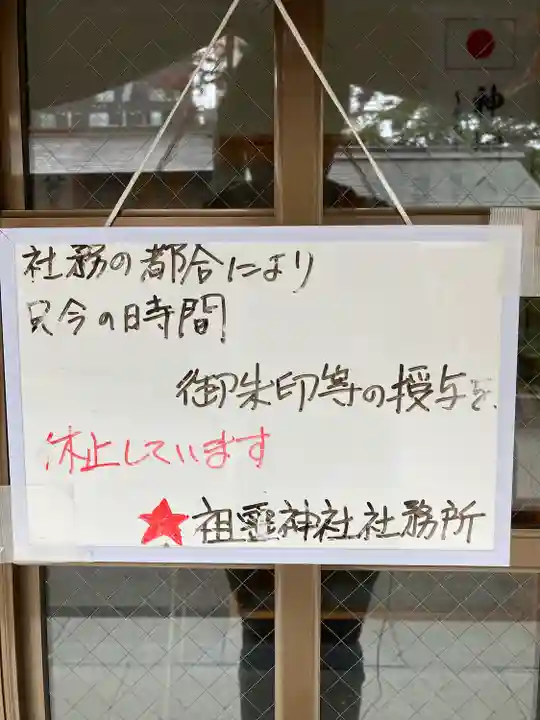 社務の都合により
只今の時間
御朱印等の授与を
休止しています
★祖霊神社社務所
神